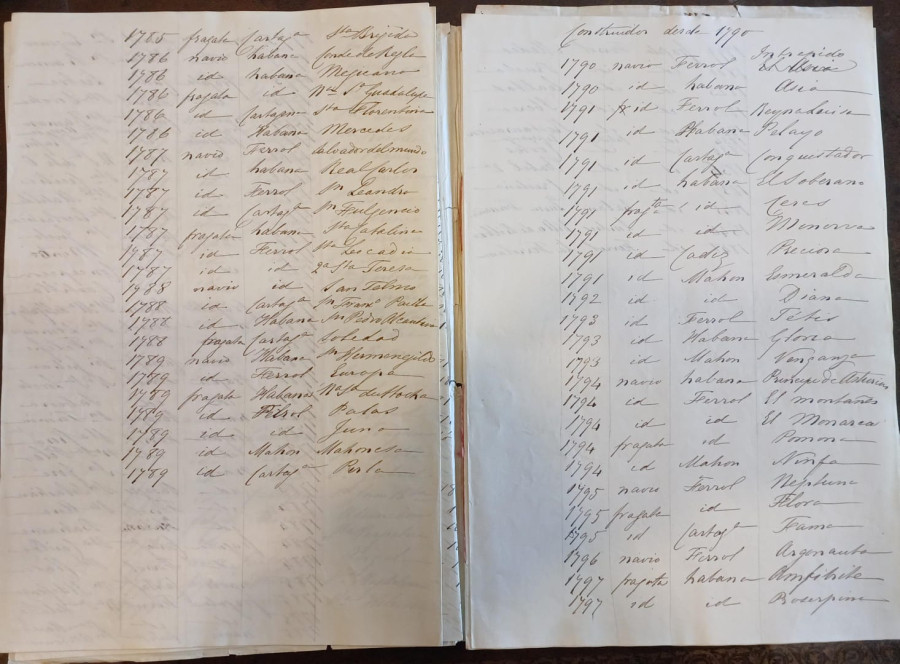 1785 fragata Cartag.a Sta Brijida
1786 navio habana Conde de Regla
1786 id habana Mejicano
1786 fragata id Nra Sa Guadalupe
1786 id Cartagna Sta Florentina
1786 id Habana Mercedes
1787 navio Ferrol Salvador del mundo
1787 id habana Real Carlos
1787 id Ferrol Sn Leandro
1787 id Cartaga Sn Fulgencio
1787 fragata habana Sta Catalina
1787 id Ferrol Sta Leocadia
1787 id id 2a Sta Teresa
1788 navio id San Telmo
1788 id Cartaga Sn Franco Paula
1788 id Habana Sn Pedro Alcantara
1788 fragata Cartaga Soledad
1789 navio Habana Sn Hermenegildo
1789 id Ferrol Europa
1789 fragata Habana Na Sa de Atocha
1789 id Ferrol Palas
1789 id id Juno
1789 id Mahon Mahonesa
1789 id Cartaga Perla
Construidos desde 1790
1790 navio Ferrol Intrepido
1790 id habana Asia
1791 id Ferrol Reyna Luisa
1791 id Habana Pelayo
1791 id Cartaga Conquestador
1791 id habana El Soberano
1791 fragta id Ceres
1791 id id Minerva
1791 id Cadiz Preciosa
1791 id Mahon Esmeralda
1792 id id Diana
1793 id Ferrol Tetis
1793 id Habana Gloria
1793 id Mahon Venganza
1794 navio habana Principe de Asturias
1794 id Ferrol El montañes
1794 id id El Monarca
1794 fragata id Pomona
1794 id Mahon Ninfa
1795 navio Ferrol Neptuno
1795 fragata id Flora
1795 id Cartaga Fama
1796 navio Ferrol Argonauta
1797 fragata habana Anfitrite
1797 id id Proserpina